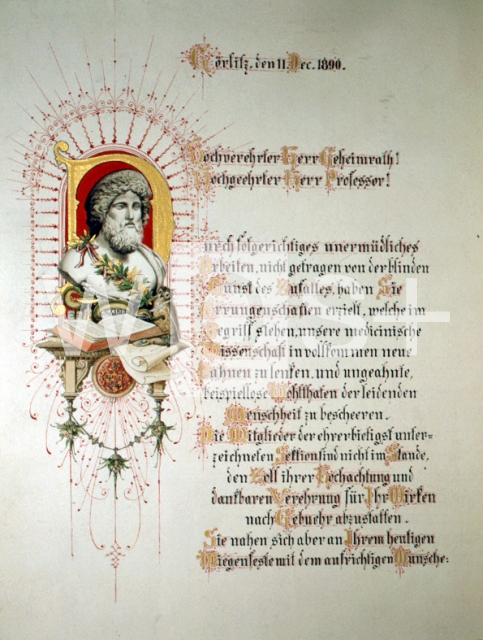 Görlitz, den 11. Dec. 1890.
Hochverehrter Herr Geheimrath!
Hochgeehrter Herr Professor!
Durch folgerichtiges unermüdliches
Arbeiten, nicht getragen von der blinden
Gunst des Zufalles, haben Sie
Errungenschaften erzielt, welche im
Begriff stehen, unsere medicinische
Wissenschaft in vollkommen neue
Bahnen zu lenken, und ungeahnte,
beispiellose Wohlthaten der leidenden
Menschheit zu bescheeren.
Die Mitglieder der ehrerbietigst unter=
zeichneten Sektion sind nicht im Stande,
den Zoll ihrer Hochachtung und
dankbaren Verehrung für Ihr Wirken
nach Gebuehr abzustatten.
Sie nahen sich aber an Ihrem heutigen
Wiegenfeste mit dem aufrichtigen Wunsche: